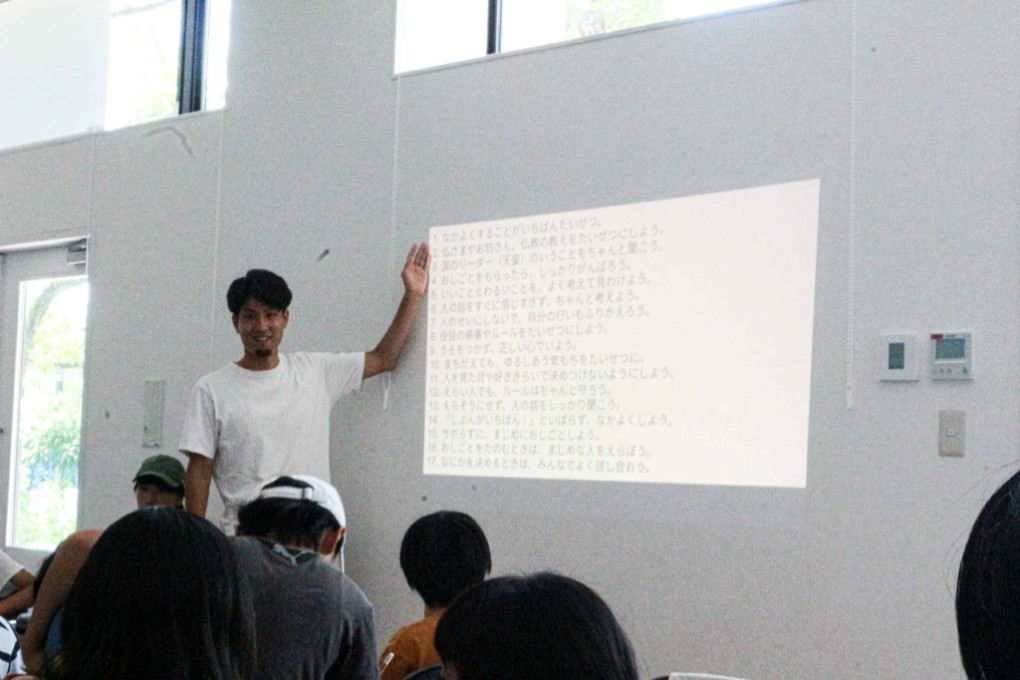 1. なかよくすることがいちばんたいせつ。
2. 仏さまやお坊さん、仏教の教えをたいせつにしよう。
3. 国のリーダー（天皇）のいうことをちゃんと聞こう。
4. おしごとをもらったら、しっかりがんばろう。
5. いいこととわるいことを、よく考えて見わけよう。
6. 人の話をすぐに信じすぎず、ちゃんと考えよう。
7. 人のせいにしないで、自分の行いもふりかえろう。
8. 役目の順番やルールをたいせつにしよう。
9. うそをつかず、正しい心でいよう。
10. まちがえても、ゆるしあう気もちをたいせつに。
11. 人を見た目や好ききらいで決めつけないようにしよう。
12. えらい人でも、ルールはちゃんと守ろう。
13. えらそうにせず、人の話をしっかり聞こう。
14. 「じぶんがいちばん！」といばらず、なかよくしよう。
15. サボらずに、まじめにおしごとしよう。
16. おしごとをたのむときは、まじめな人をえらぼう。
17. なにかを決めるときは、みんなでよく話し合おう。